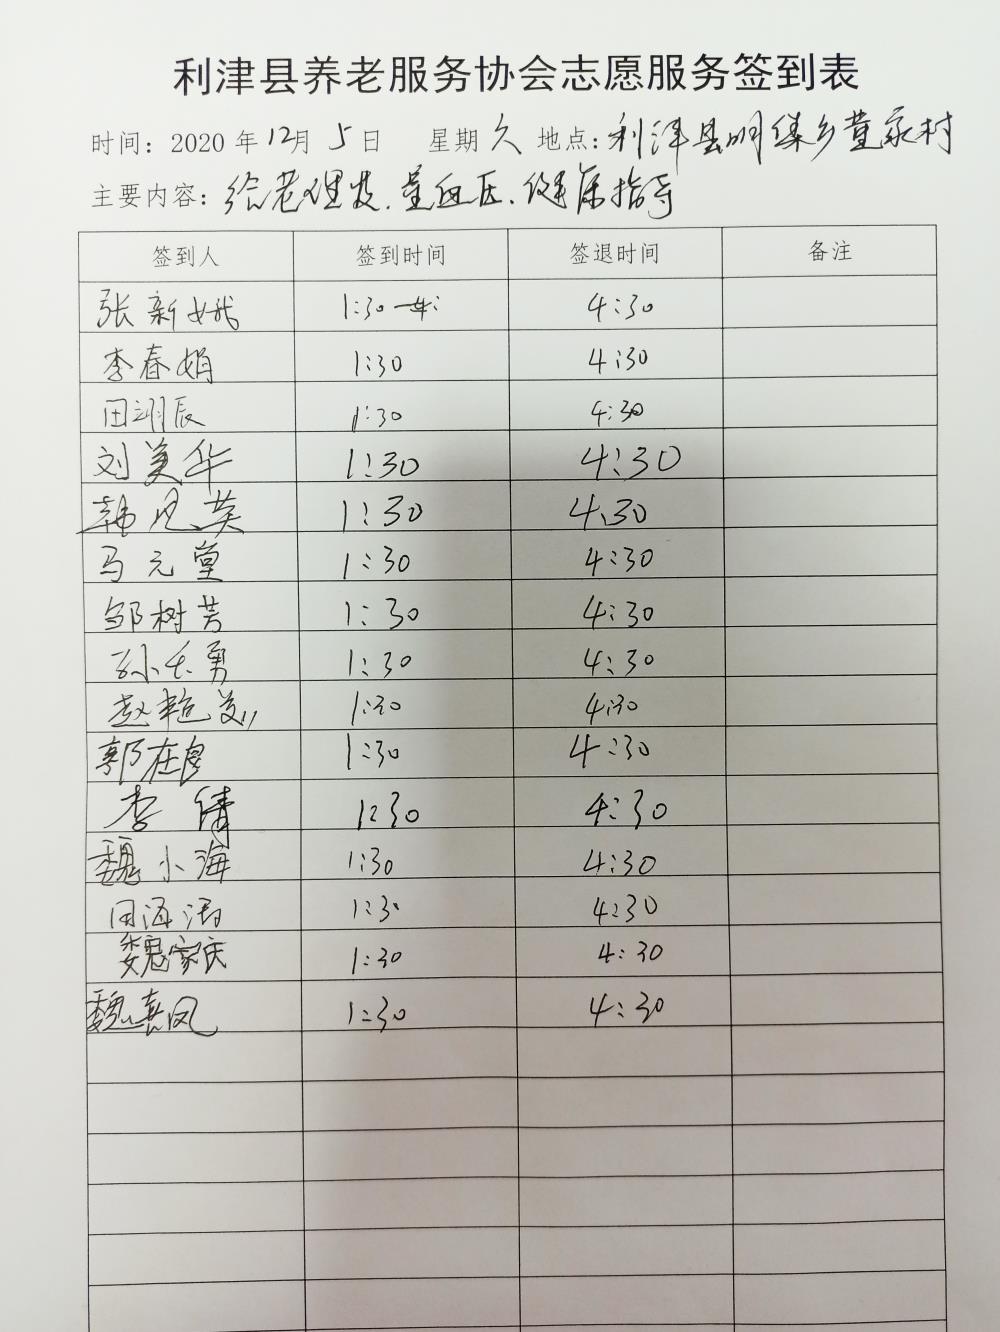 利津县养老服务协会志愿服务签到表
时间：2020年12月5日 星期六 地点：利津县明集乡董家村
主要内容：给老理发、量血压、健康指导
签到人 签到时间 签退时间 备注
张新娥 1:30 4:30
李春娟 1:30 4:30
田翊辰 1:30 4:30
刘美华 1:30 4:30
韩凤英 1:30 4:30
马元堂 1:30 4:30
邹树芳 1:30 4:30
孙长勇 1:30 4:30
赵 1:30 4:30
郭在良 1:30 4:30
李倩 1:30 4:30
魏小海 1:30 4:30
田海涛 1:30 4:30
魏家庆 1:30 4:30
魏春凤 1:30 4:30